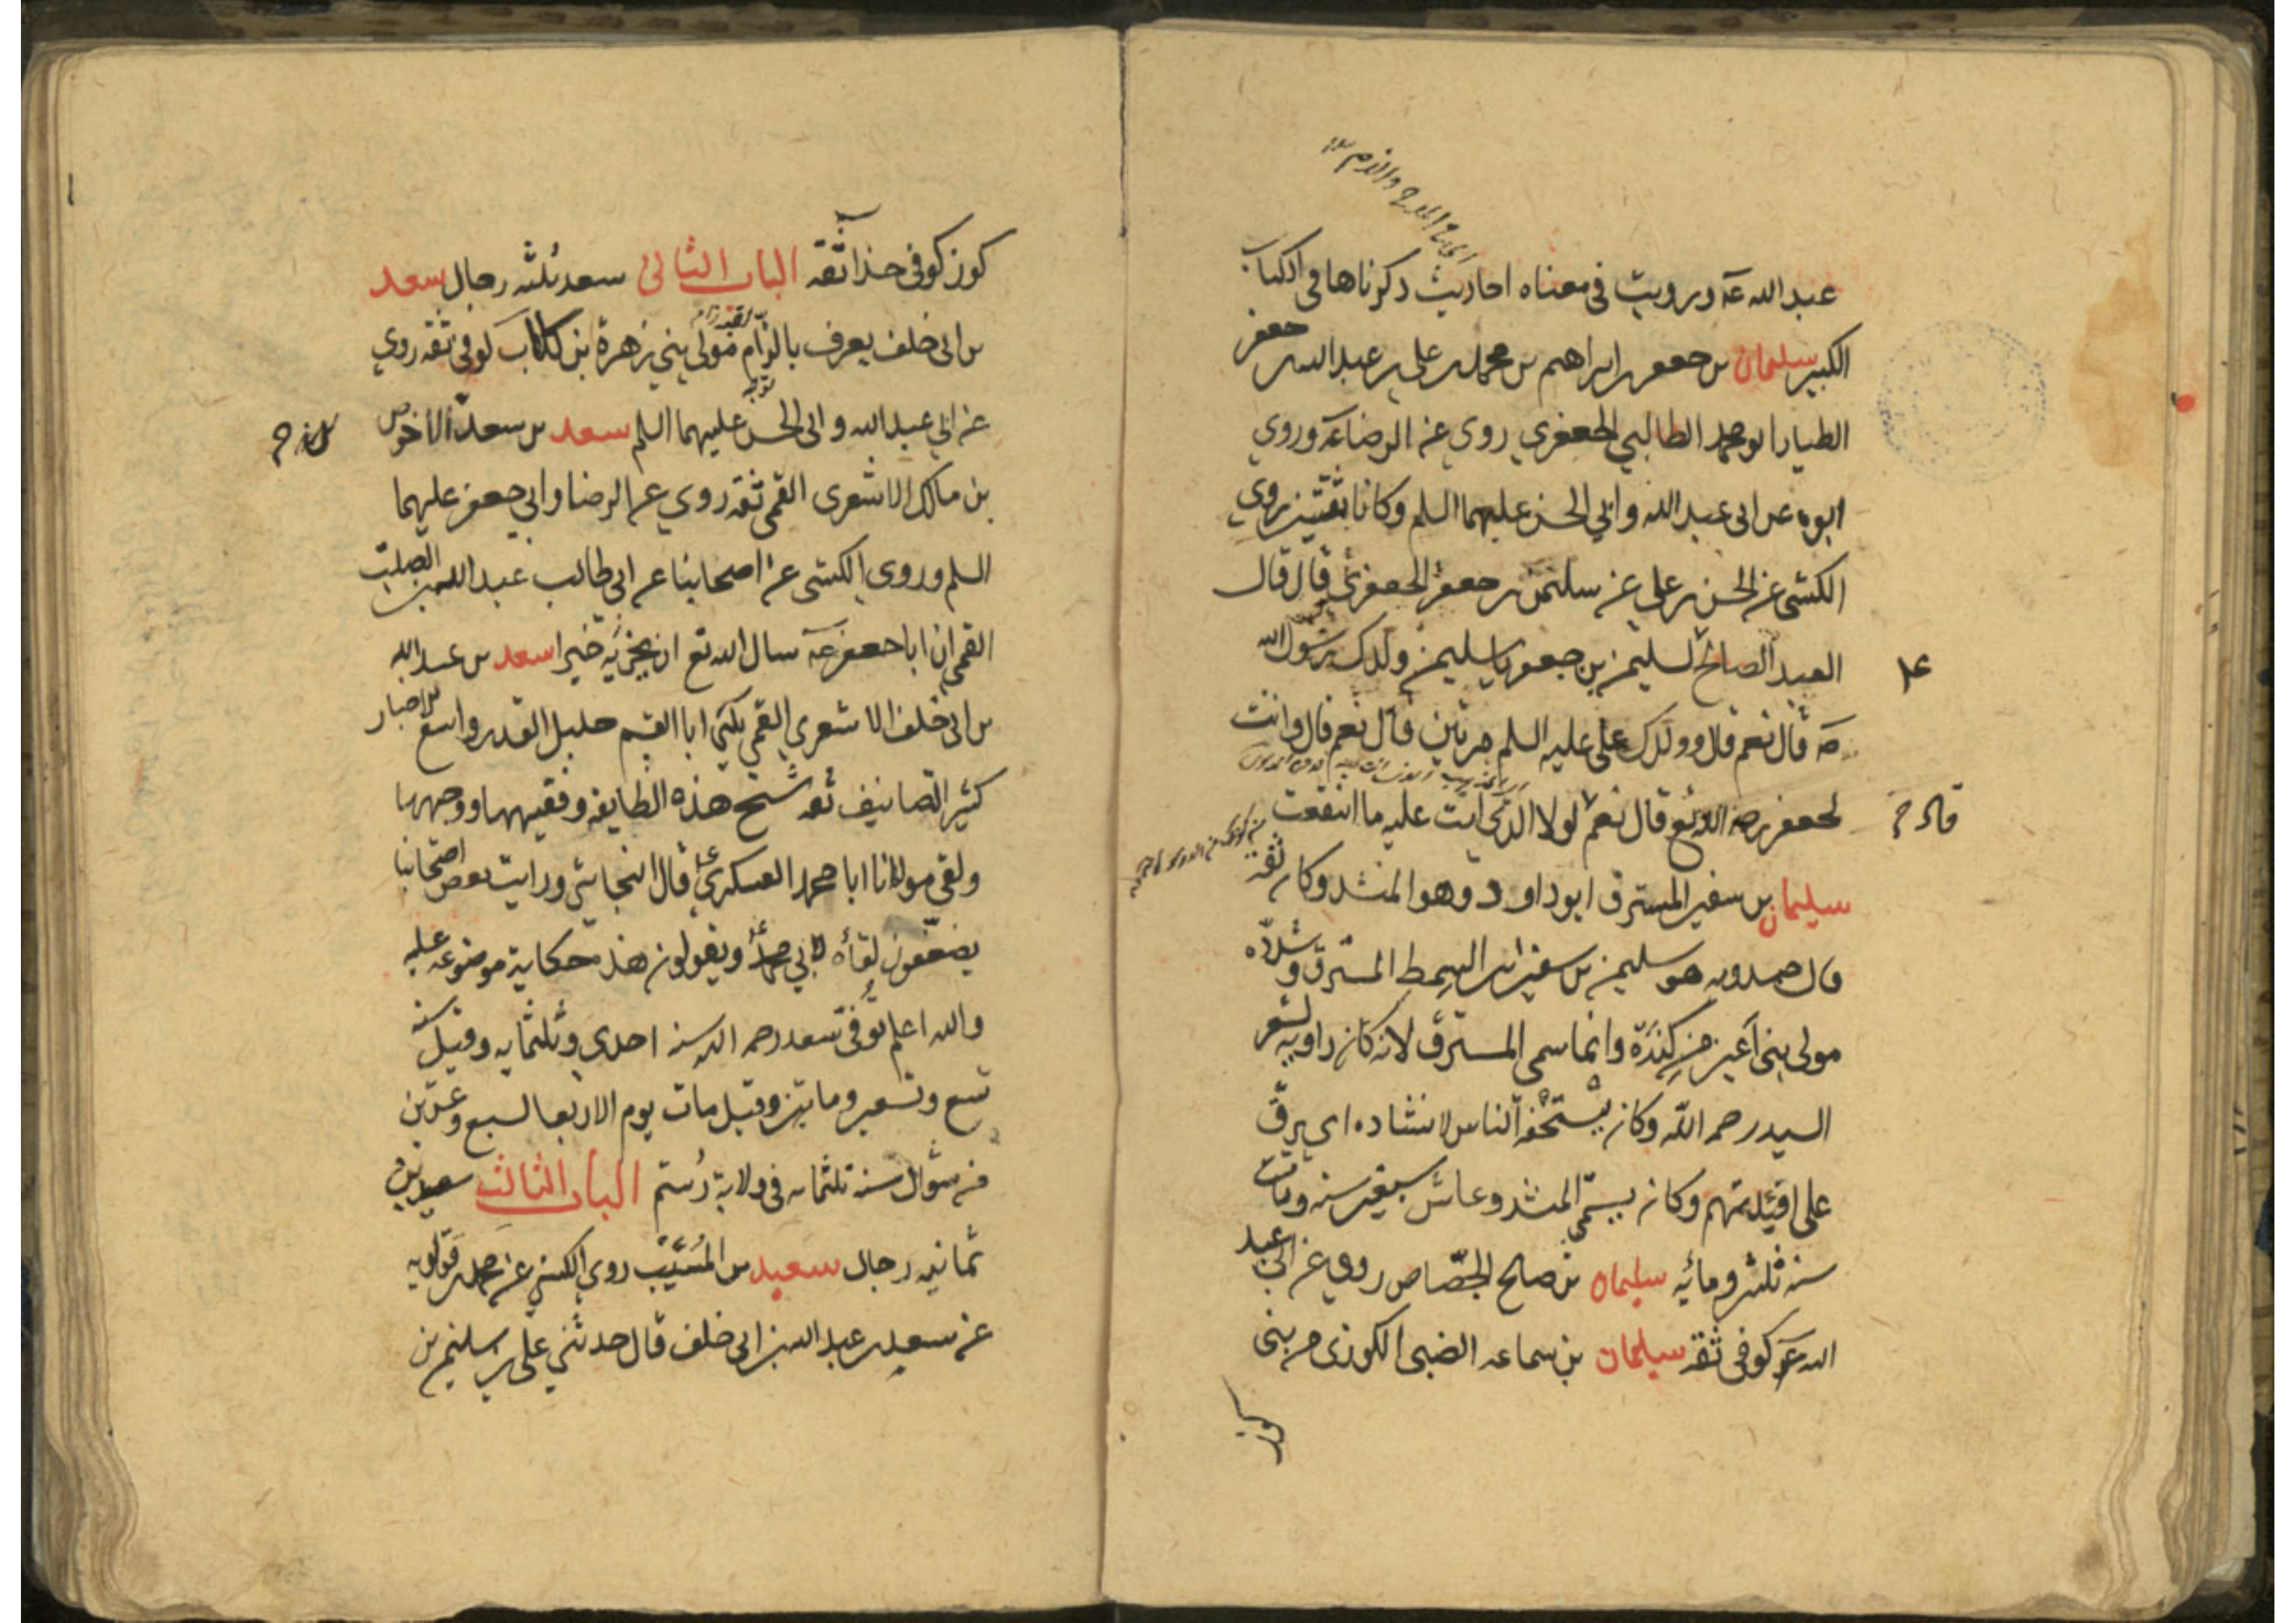 عبد الله عه ورويت في معناه احاديث ذكرناها في الكتاب
الكبير سليمان بن جعفر بن ابراهيم بن محمد بن علي بن عبد الله بن جعفر
الطيار ابو محمد الطالبي الجعفري روى عن الرضا عه وروي
ابوه عن ابي عبد الله وابي الحسن عليهما السلم وكانا ثقتين روي
الكشي عن الحسن بن علي عن سليمن بن جعفر الجعفري قال قال
العبد الصالح لسليمن بن جعفر يا سليمن ولدك رسول الله
صه قال نعم قال وولدك علي عليه السلم مرتين قال نعم قال وانت
لجعفر رحمه الله تع قال نعم قال لولا الذي انت عليه ما انتفعت
سليمان بن سفير المسترق ابو داود وهو المنشد وكان ثقة
قال حمدويه هو سليمن بن سفير ابن السمط المسترق
مولى بني اعير من كندة وانما سمي المسترق لانه كان راوية لشعر
السيد رحمه الله وكان يستخفه الناس لانشاده اي يرق
على افئدتهم وكان يسمى المنشد وعاش سبعين سنه ومات
سنه ثلثين ومائه سليمان بن صالح الجصاص روي عن ابي عبد
الله عه كوفي ثقه سليمان بن سماعه الضبي الكوزي من بني
كوز
كوز كوفي حذا ثقه الباب الثاني سعد ثلثه رجال سعد
بن ابي خلف يعرف بالزام مولى بني زهرة بن كلاب كوفي ثقه روي
عن ابي عبد الله وابي الحسن عليهما السلم سعد بن سعد الاخوص
بن مالك الاشعري القمي ثقه روي عن الرضا وابي جعفر عليهما
السلم وروي الكشي عن اصحابنا عن ابي طالب عبد الله بن الصلت
القمي ان ابا جعفر عه سال الله تع ان يجزيه خيرا سعد بن عبد الله
بن ابي خلف الاشعري القمي يكنى ابا القسم جليل القدر واسع الاخبار
كثير التصانيف ثقه شيخ هذه الطايفه وفقيهها ووجهها
ولقي مولانا ابا محمد العسكري عه قال النجاشي ورايت بعض اصحابنا
يضعفون لقاه لابي محمد عه ويقولون هذه حكاية موضوعه عليه
والله اعلم توفي سعد رحمه الله سنه احدي وثلثمايه وقيل سنه
تسع وتسعين وماتين وقيل مات يوم الاربعا لسبع وعشرين
من شوال سنه ثلثمايه في ولاية رستم الباب الثالث سعيد
ثمانيه رجال سعيد بن المسيب روي الكشي عن محمد بن قولويه
عن سعد بن عبد الله بن ابي خلف قال حدثني علي بن سليمن بن